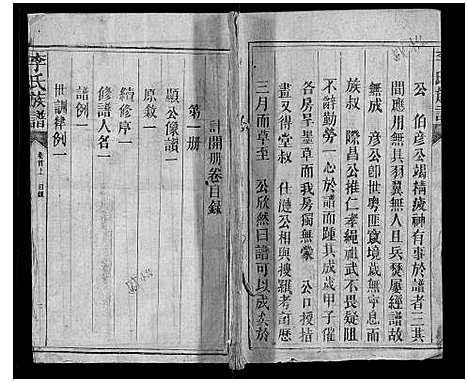 公　伯彥公竭精疲神有事於譜者三其
奈何無其羽翼無人且兵燹屢經譜故
無成　彥公卽世粵匪竄境歲無寧息而
族叔　際昌公推仁孝繩祖武不畏疑阻
不辭勤勞　心於譜而踵其成歲甲子催
各房呈墨草而我房獨無蒙　公口授指
畫又得堂叔　仕漣公相與搜羅考訂歷
三月而草至　公欣然曰譜可以成矣於
計開册卷目錄
第一册
顯公像讚一
原敘一
續修序一
修譜人名一
譜例一
世訓律例一
李氏族譜
卷首上　目錄